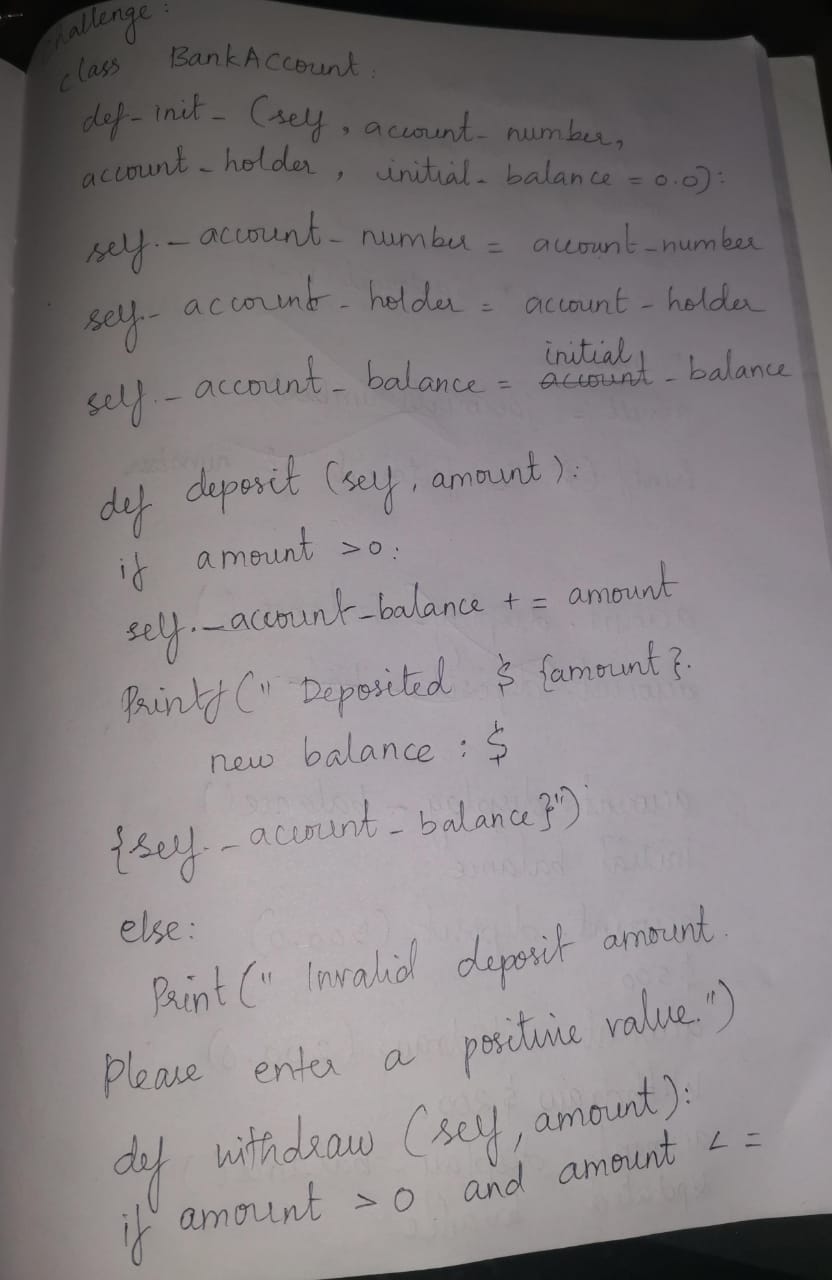 challenge:
class BankAccount:
def-init-(self, account-number,
account-holder, initial-balance = 0.0):
self.-account-number = account-number
self.-account-holder = account-holder
self.-account-balance = initial-balance
def deposit (self, amount):
if amount >0:
self.-account-balance += amount
Printf(" Deposited $ {amount}.
new balance : $
{self.-account-balance}")
else:
Print(" Invalid deposit amount.
Please enter a positive value.")
def withdraw (self, amount):
if amount >0 and amount <=